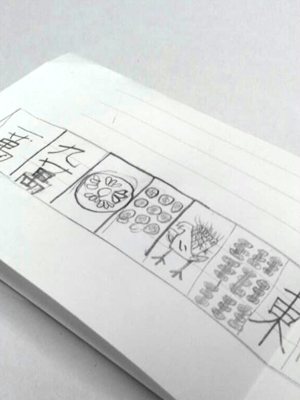 一萬
九萬
東